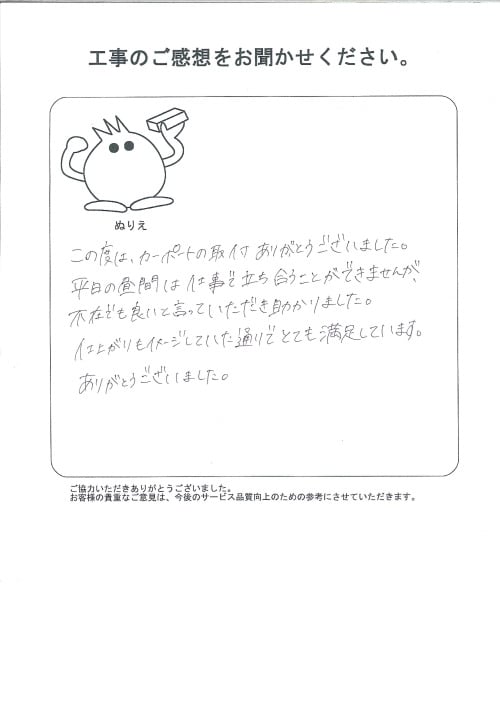 工事のご感想をお聞かせください。
ぬりえ
この度は、カーポートの取付 ありがとうございました。
平日の昼間は仕事で立ち合うことができませんが、
不在でも良いと言っていただき助かりました。
仕上がりもイメージしていた通りでとても満足しています。
ありがとうございました。
ご協力いただきありがとうございました。
お客様の貴重なご意見は、今後のサービス品質向上のための参考にさせていただきます。